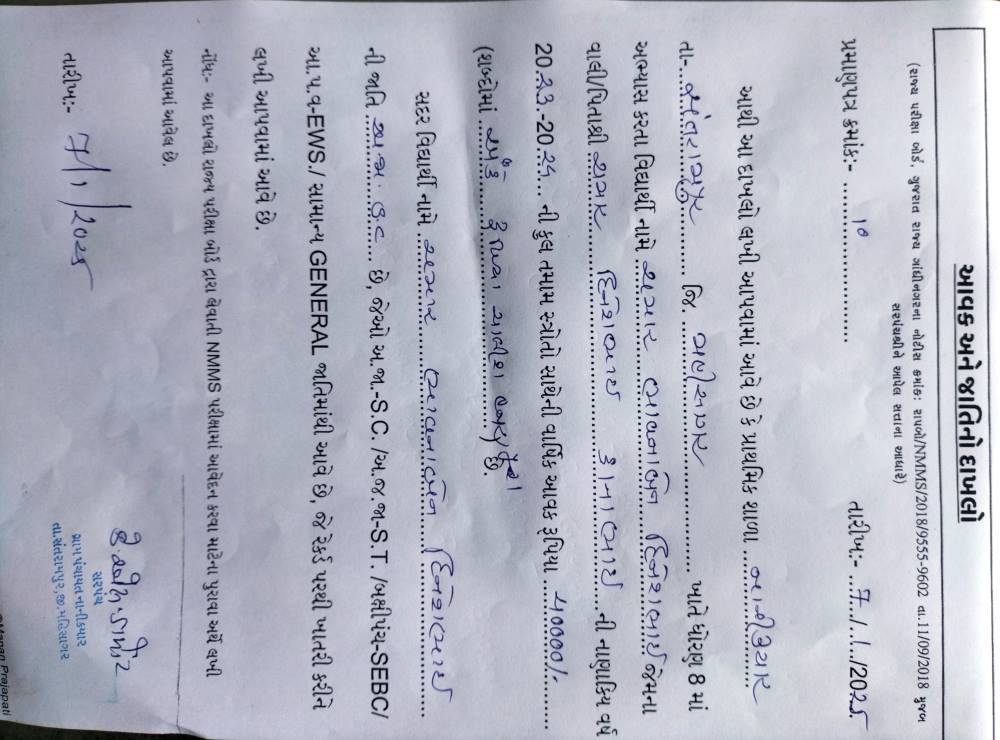 આવક અને જાતિનો દાખલો
(રાજ્ય પરીક્ષા બોર્ડ, ગુજરાત રાજ્ય ગાંધીનગરના નોટીસ ક્રમાંક: રાપબો/NMMS/2018/9555-9602 તા.11/09/2018 મુજબ
સરપંચશ્રીને આપેલ સત્તાના આધારે)
પ્રમાણપત્ર ક્રમાંક:- 10 તારીખ:- 7/1/2025
આથી આ દાખલો લખી આપવામાં આવે છે કે પ્રાથમિક શાળા નાનીક્યાર
તા. સંતરામપુર જિ. મહીસાગર ખાતે ધોરણ 8 માં
અભ્યાસ કરતા વિદ્યાર્થી નામે ડામોર દિનેશભાઈ જેમના
વાલી/પિતાશ્રી ડામોર દિનેશભાઈ કાનાભાઈ ની નાણાકિય વર્ષ
2023-2024 ની કુલ તમામ સ્ત્રોતો સાથેની વાર્ષિક આવક રૂપિયા 40000/-
(શબ્દોમાં અંકે રૂપિયા ચાલીસ હજાર પુરા છે.
સદર વિદ્યાર્થી નામે ડામોર દિનેશભાઈ
ની જાતિ છે, જેઓ અ.જા.-S.C. /અ.જ.જા-S.T. /બક્ષીપંચ-SEBC/
આ.પ.વ-EWS / સામાન્ય GENERAL જાતિમાંથી આવે છે, જે રેકર્ડ પરથી ખાતરી કરીને
લખી આપવામાં આવે છે.
નોંધ:- આ દાખલો રાજ્ય પરીક્ષા બોર્ડ દ્વારા લેવાતી NMMS પરીક્ષામાં આવેદન કરવા માટેના પુરાવા અર્થે લખી
આપવામાં આવેલ છે.
તારીખ:- 7/1/2025
સરપંચ
ગ્રામ પંચાયત નાનીક્યાર
તા.સંતરામપુર, જી.મહિસાગર
Manan Prajapati